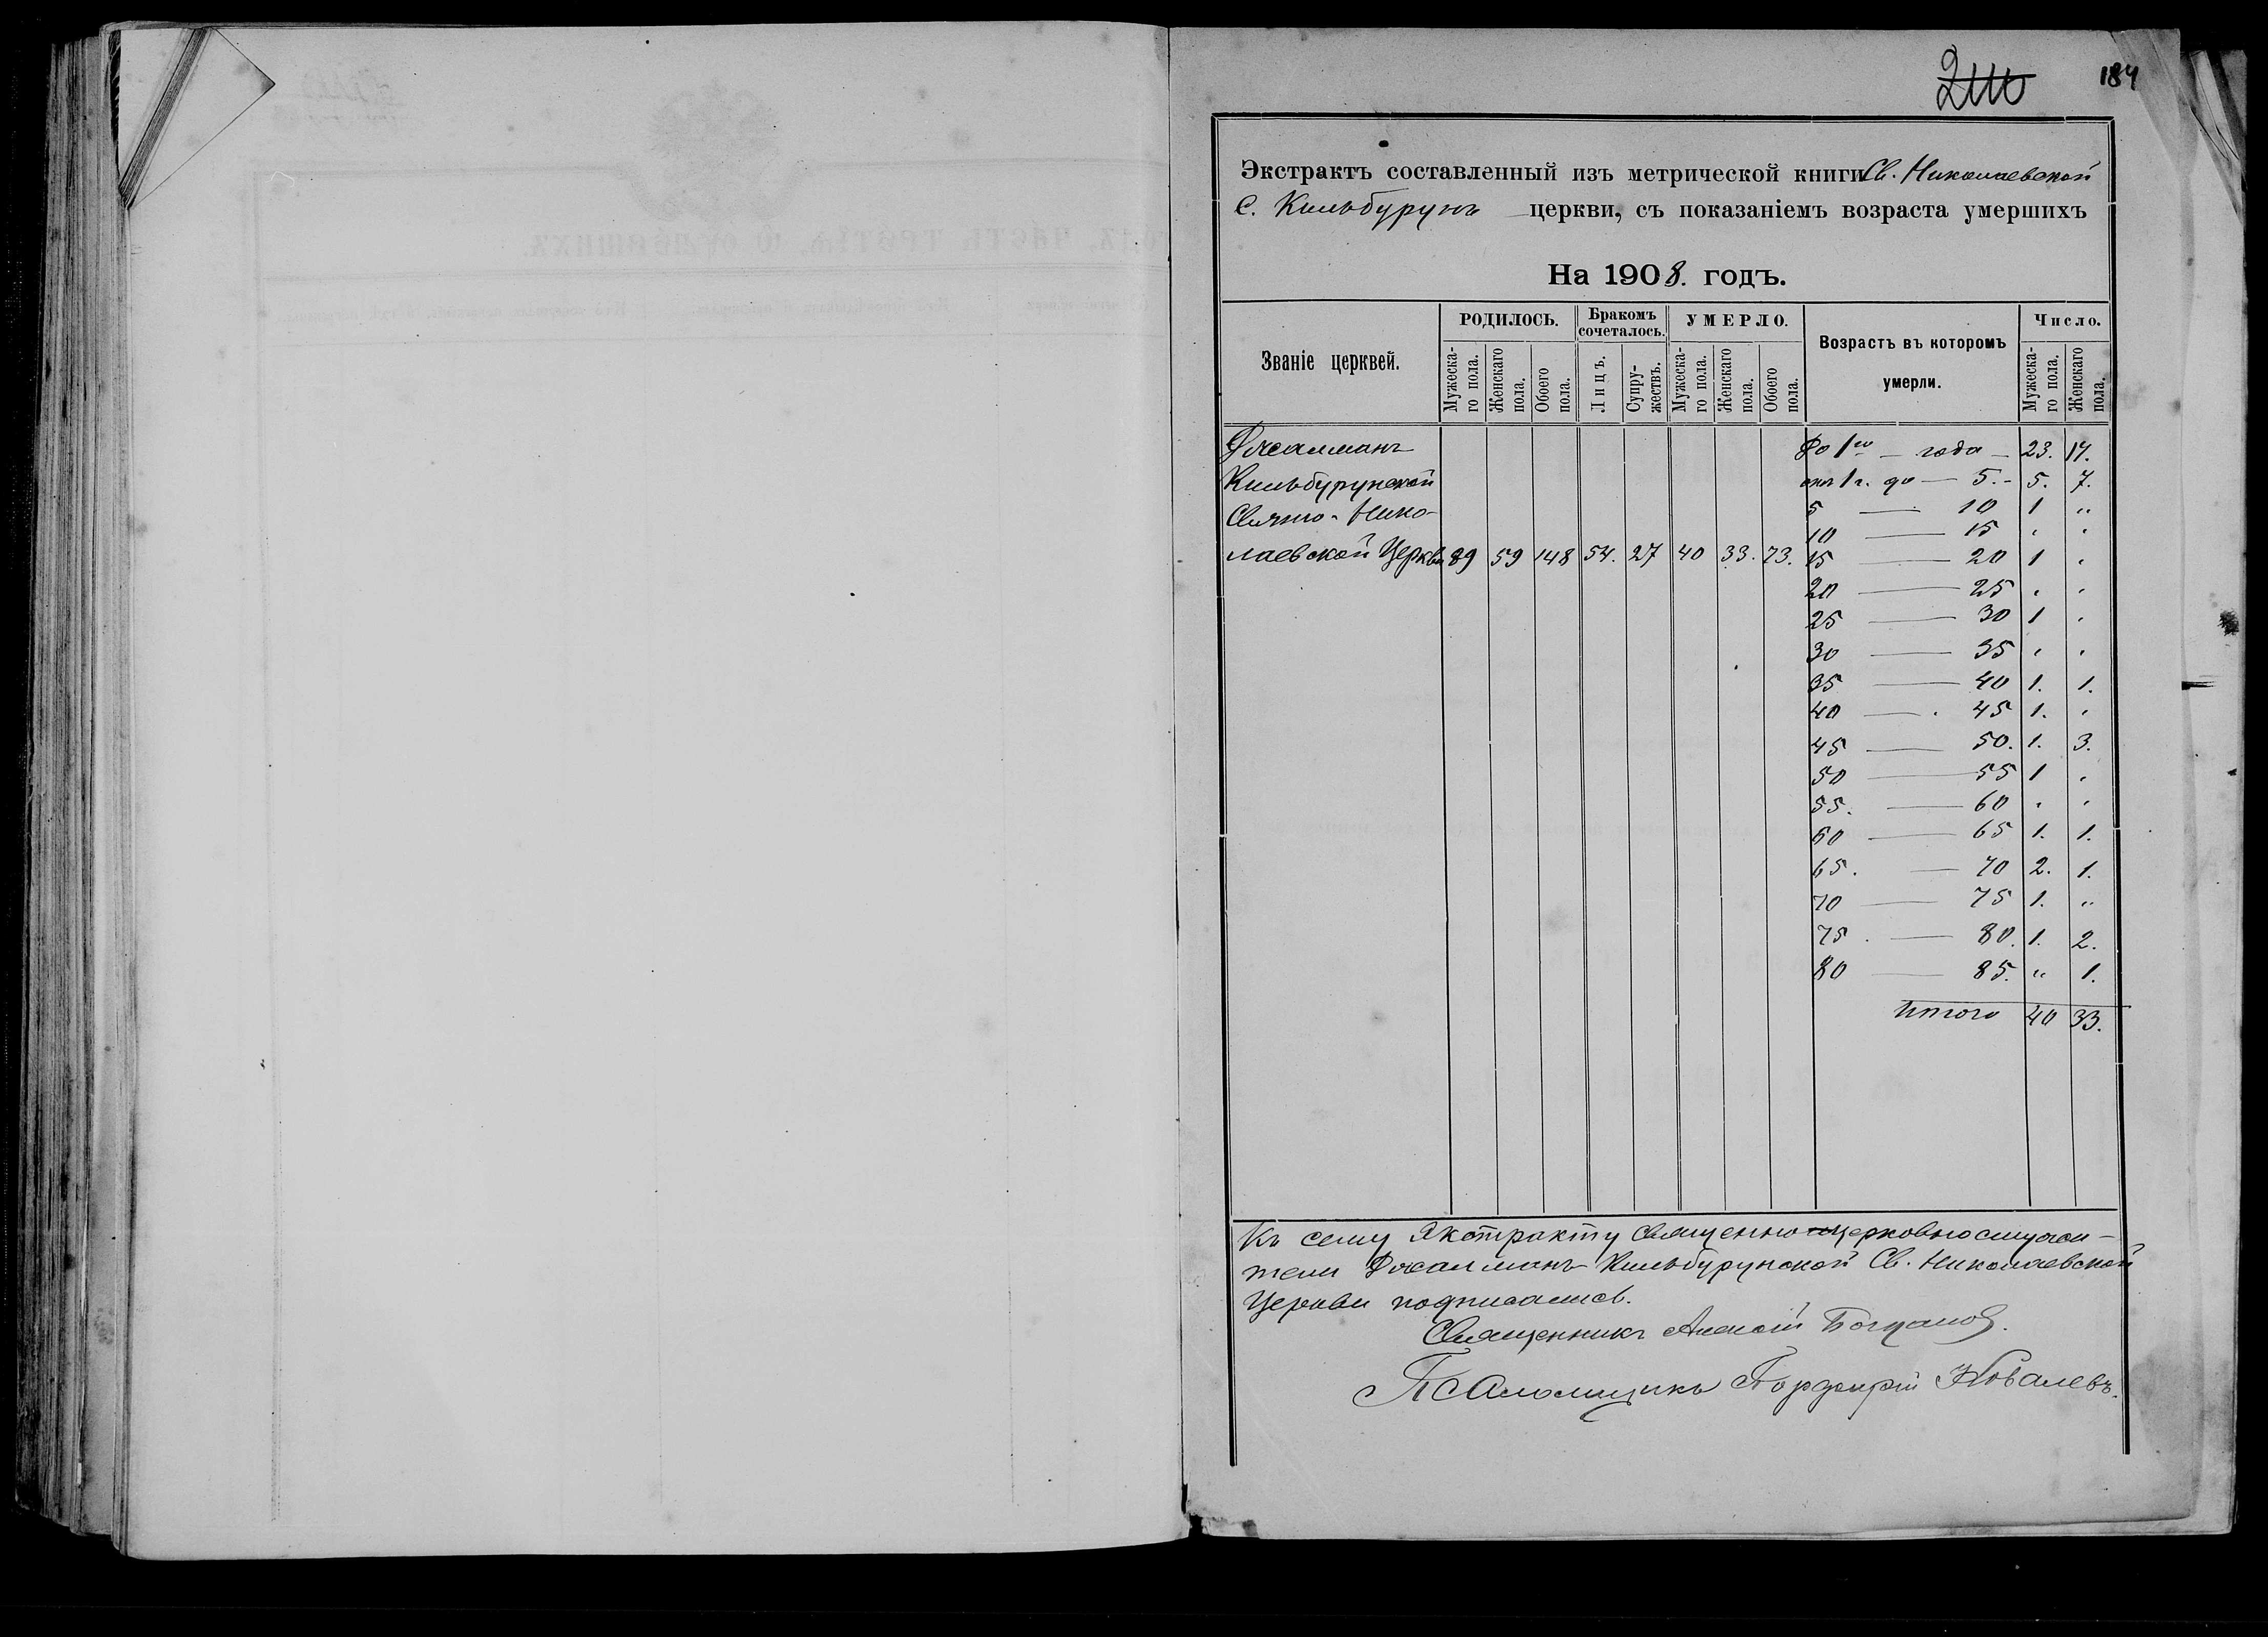 184
Экстрактъ составленный изъ метрической книги Св. Николаевской
с. Кильбурунъ церкви, съ показаніемъ возраста умершихъ
На 1908. годъ.
Званіе церквей.
РОДИЛОСЬ.
Бракомъ сочеталось.
УМЕРЛО.
Возрастъ въ которомъ умерли.
Число.
Мужеска-го пола.
Женскаго пола.
Обоего пола.
Лицъ.
Супру-жествъ.
Мужеска-го пола.
Женскаго пола.
Обоего пола.
Мужеска-го пола.
Женскаго пола.
Джалманъ
Кильбурунской
Свято-Нико-
лаевской Церкви 89 59 148 54. 27 40 33. 73.
До 1го — года — 23. 17.
отъ 1 г. до — 5. - 5. 7.
5 — 10 1 „
10 — 15 „ „
15 — 20 1 „
20 — 25 „ „
25 — 30 1 „
30 — 35 „ „
35 — 40 1. 1.
40 — 45 1. „
45 — 50. 1. 3.
50 — 55 1 „
55. — 60 „ „
60 — 65 1. 1.
65. — 70 2. 1.
70 — 75 1. „
75. — 80. 1. 2.
80 — 85. „ 1.
Итого 40 33.
Къ сему Экстракту Священно-церковнослужи-
тели Джалманъ-Кильбурунской Св. Николаевской
Церкви подписались.
Священникъ Алексій
Псаломщикъ Порфирій Ковалевъ.